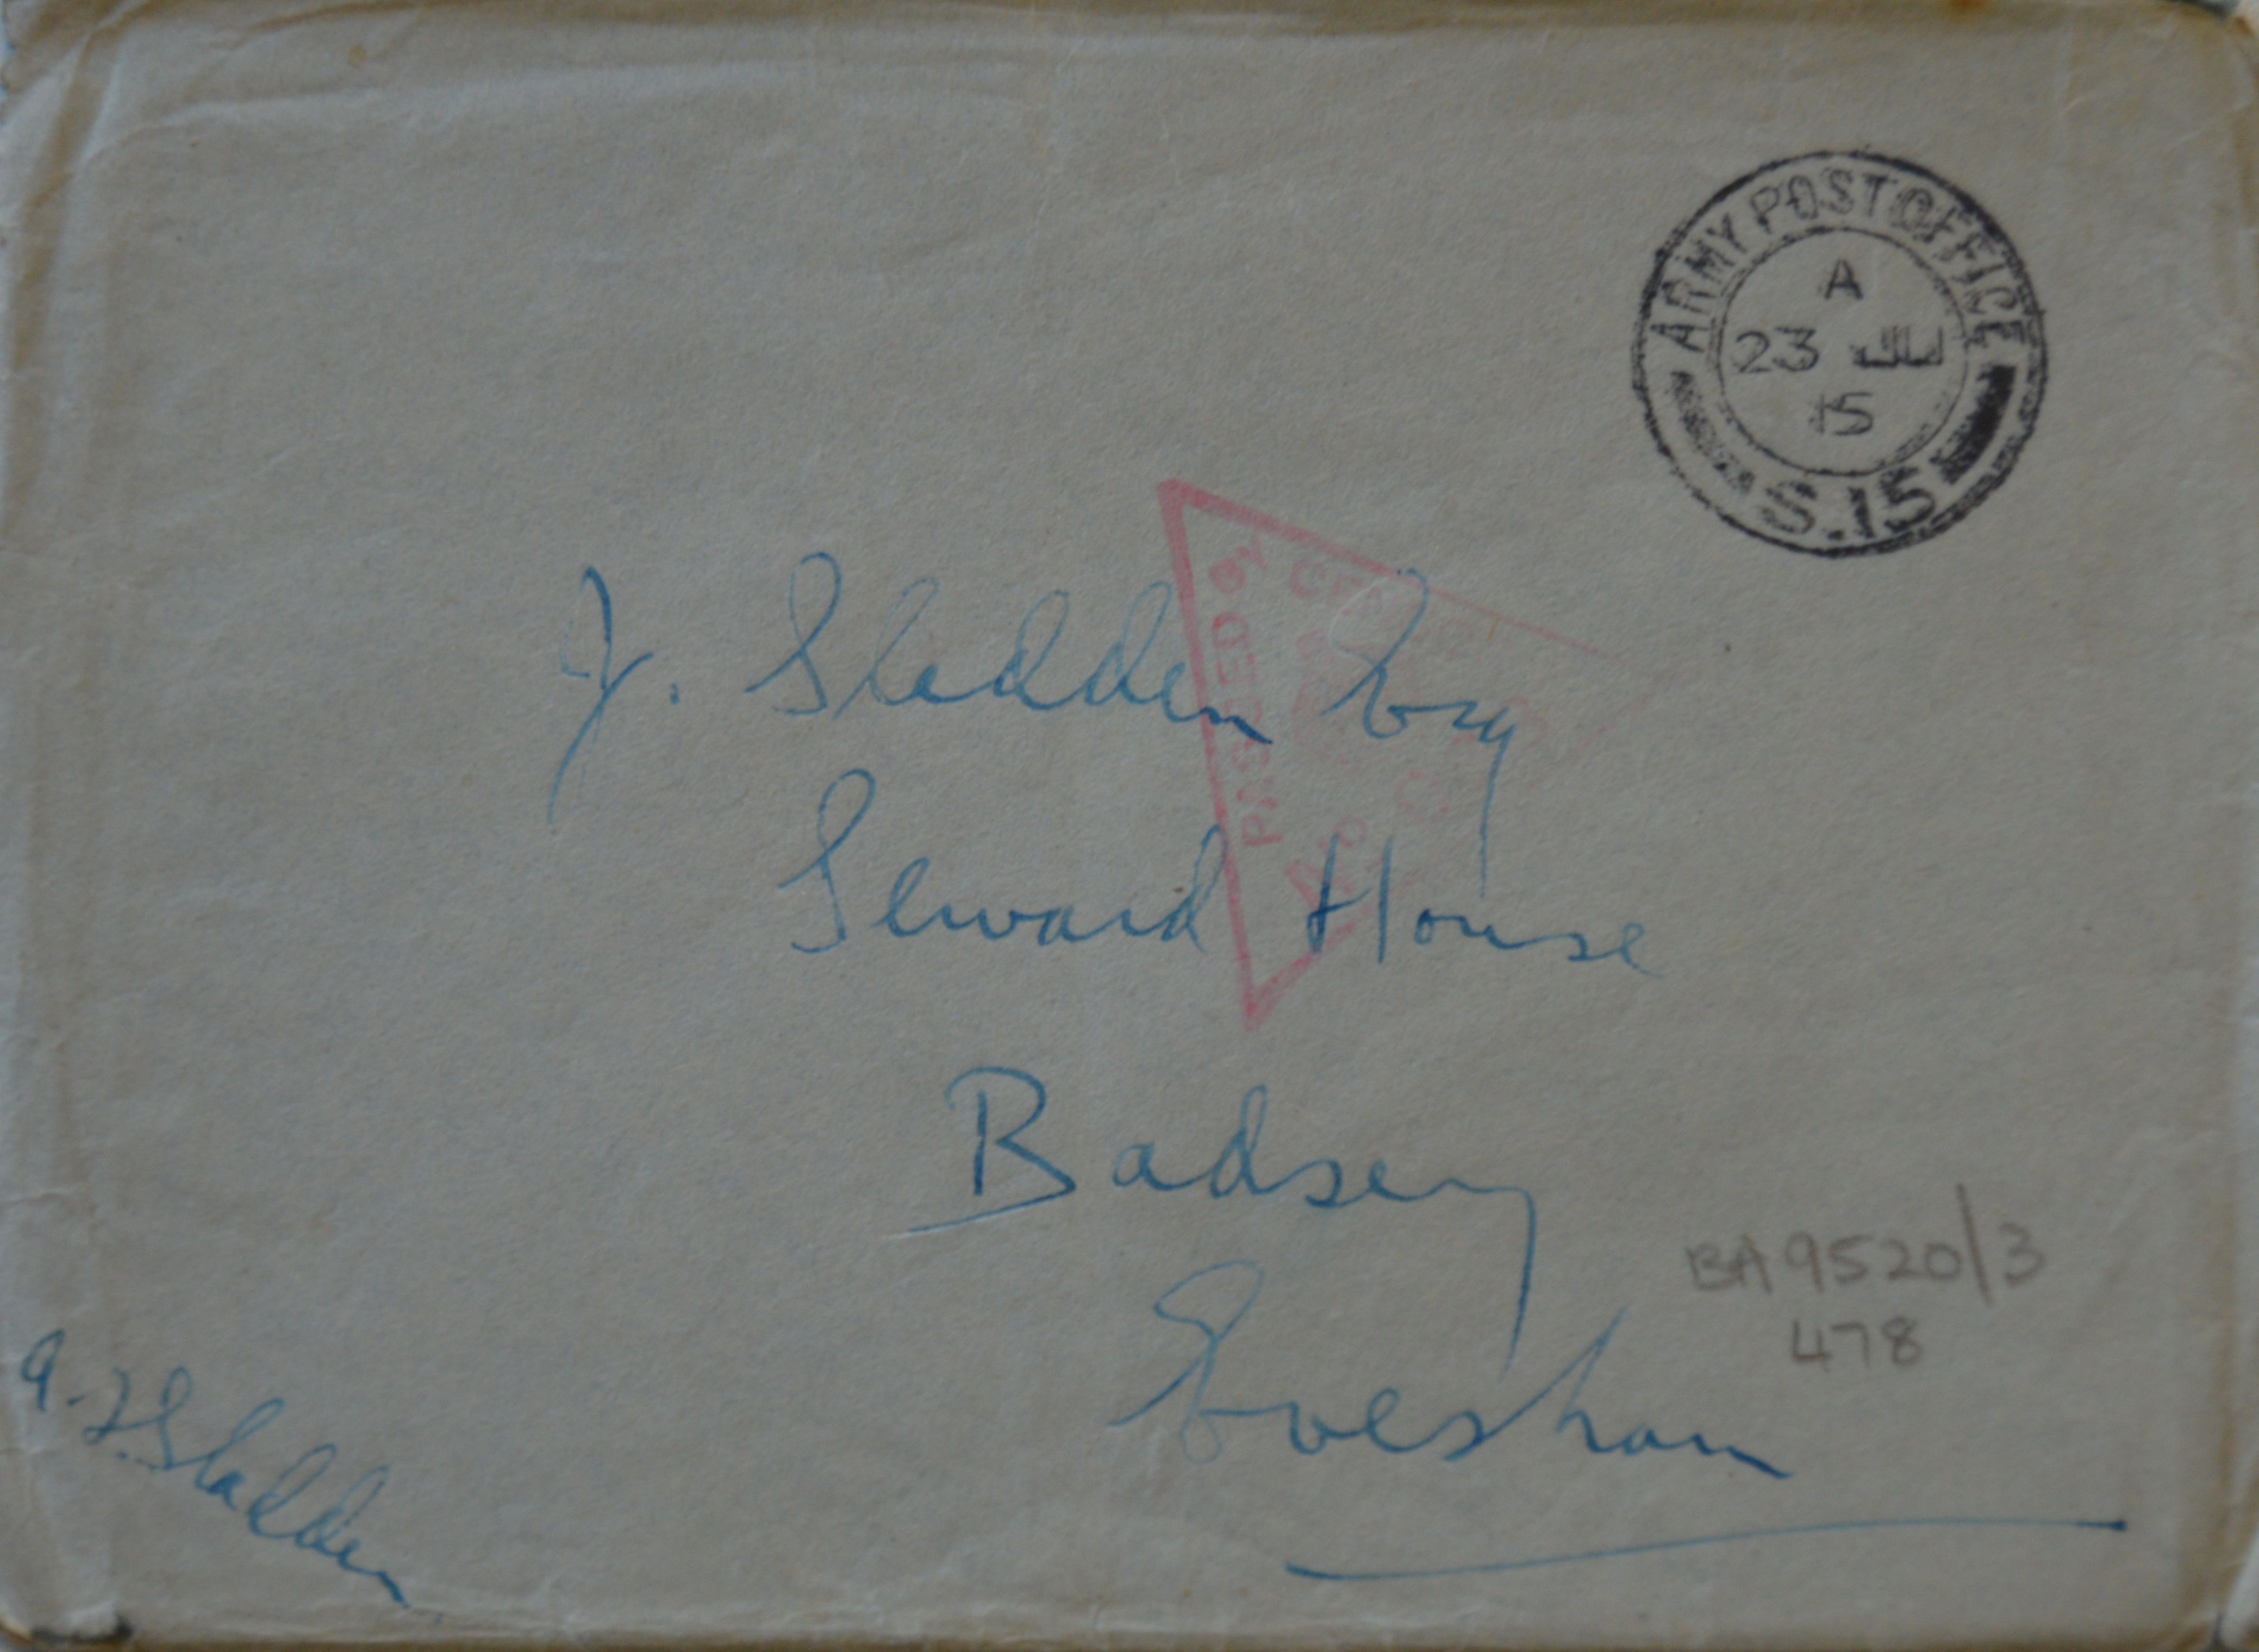 ARMY POST OFFICE
A
23 JU
15
S.15
PASSED BY
No
J. Sladden Esq
Seward House
Badsey
Evesham
BA 9520/3
478
A. F. Sladden